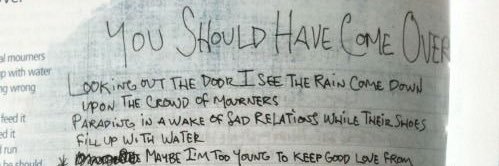 al mourners
p with water
ng wrong
feed it
ed it
l run
he should
YOU SHOULD HAVE COME OVER
LOOKING OUT THE DOOR I SEE THE RAIN COME DOWN
UPON THE CROWD OF MOURNERS
PARADING IN A WAKE OF SAD RELATIONS WHILE THEIR SHOES
FILL UP WITH WATER
* MAYBE I'M TOO YOUNG TO KEEP GOOD LOVE FROM